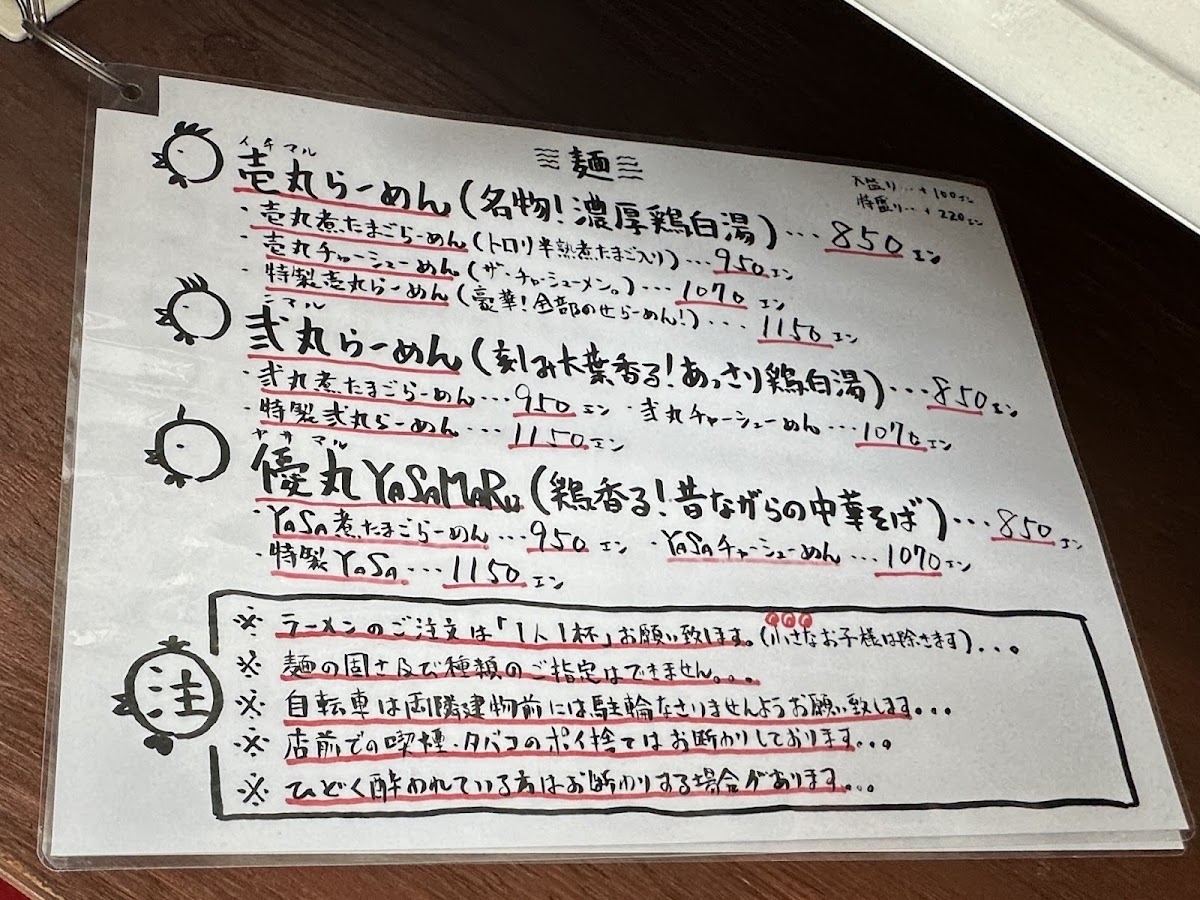 麺
大盛り…+100エン
特盛り…+220エン
イチマル
壱丸らーめん(名物!濃厚鶏白湯)…850エン
・壱丸煮たまごらーめん(トロリ半熟煮たまご入り)…950エン
・壱丸チャーシューめん(ザ・チャーシューメン。)…1070エン
・特製壱丸らーめん(豪華!全部のせらーめん!)…1150エン
ニマル
弐丸らーめん(刻み大葉香る!あっさり鶏白湯)…850エン
・弐丸煮たまごらーめん…950エン ・弐丸チャーシューめん…1070エン
・特製弐丸らーめん…1150エン
ヤサマル
優丸YASAMARU(鶏香る!昔ながらの中華そば)…850エン
・YASA煮たまごらーめん…950エン ・YASAチャーシューめん…1070エン
・特製YASA…1150エン
注
※ラーメンのご注文は「1人1杯」お願い致します。(小さなお子様は除きます)...
※麺の固さ及び種類のご指定はできません。。。
※自転車は両隣建物前には駐輪なさいませんようお願い致します...
※店前での喫煙・タバコのポイ捨てはお断りしております...
※ひどく酔われている方はお断りする場合があります...